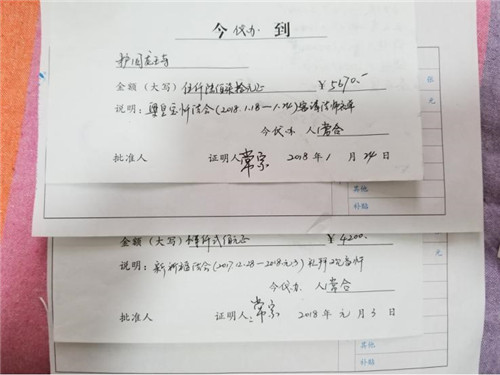 今代办 到
护国
金额(大写) 伍仟陆佰柒拾元正 ¥5670.-
说明:梁皇宝忏法会(2018.1.18—1.24)
今代办 人 常合
批准人 证明人 常宗 2018年1月24日
张
元
其他
补贴
金额(大写) 肆仟贰佰元正 ¥4200.-
说明:新年祈福法会(2017.12.28—2018.元.3)
今代办 人 常合
批准人 证明人: 常宗 2018年元月3日
张
元
其他
补贴